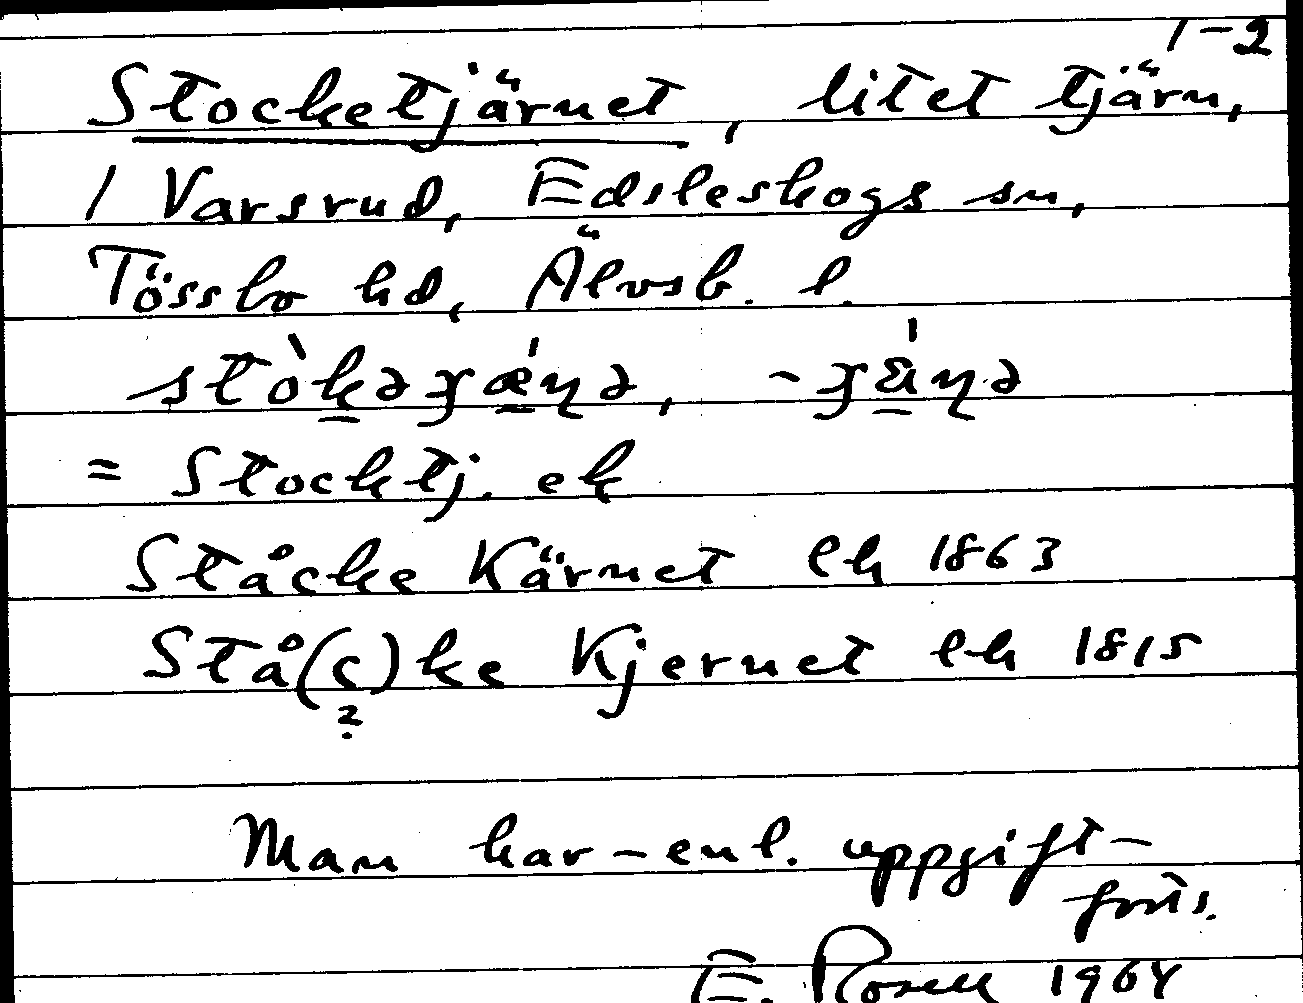 1-2
Stocketjärnet, litet tjärn,
1 Varsrud, Edsleskogs sn,
Tössbo hd, Älvsb. l.
= Stocktj. ek
Ståcke Kärnet lh 1863
Stå(c)ke Kjernet lh 1815
?
Man har - enl. uppgift -
forts.
E. Rosell 1964